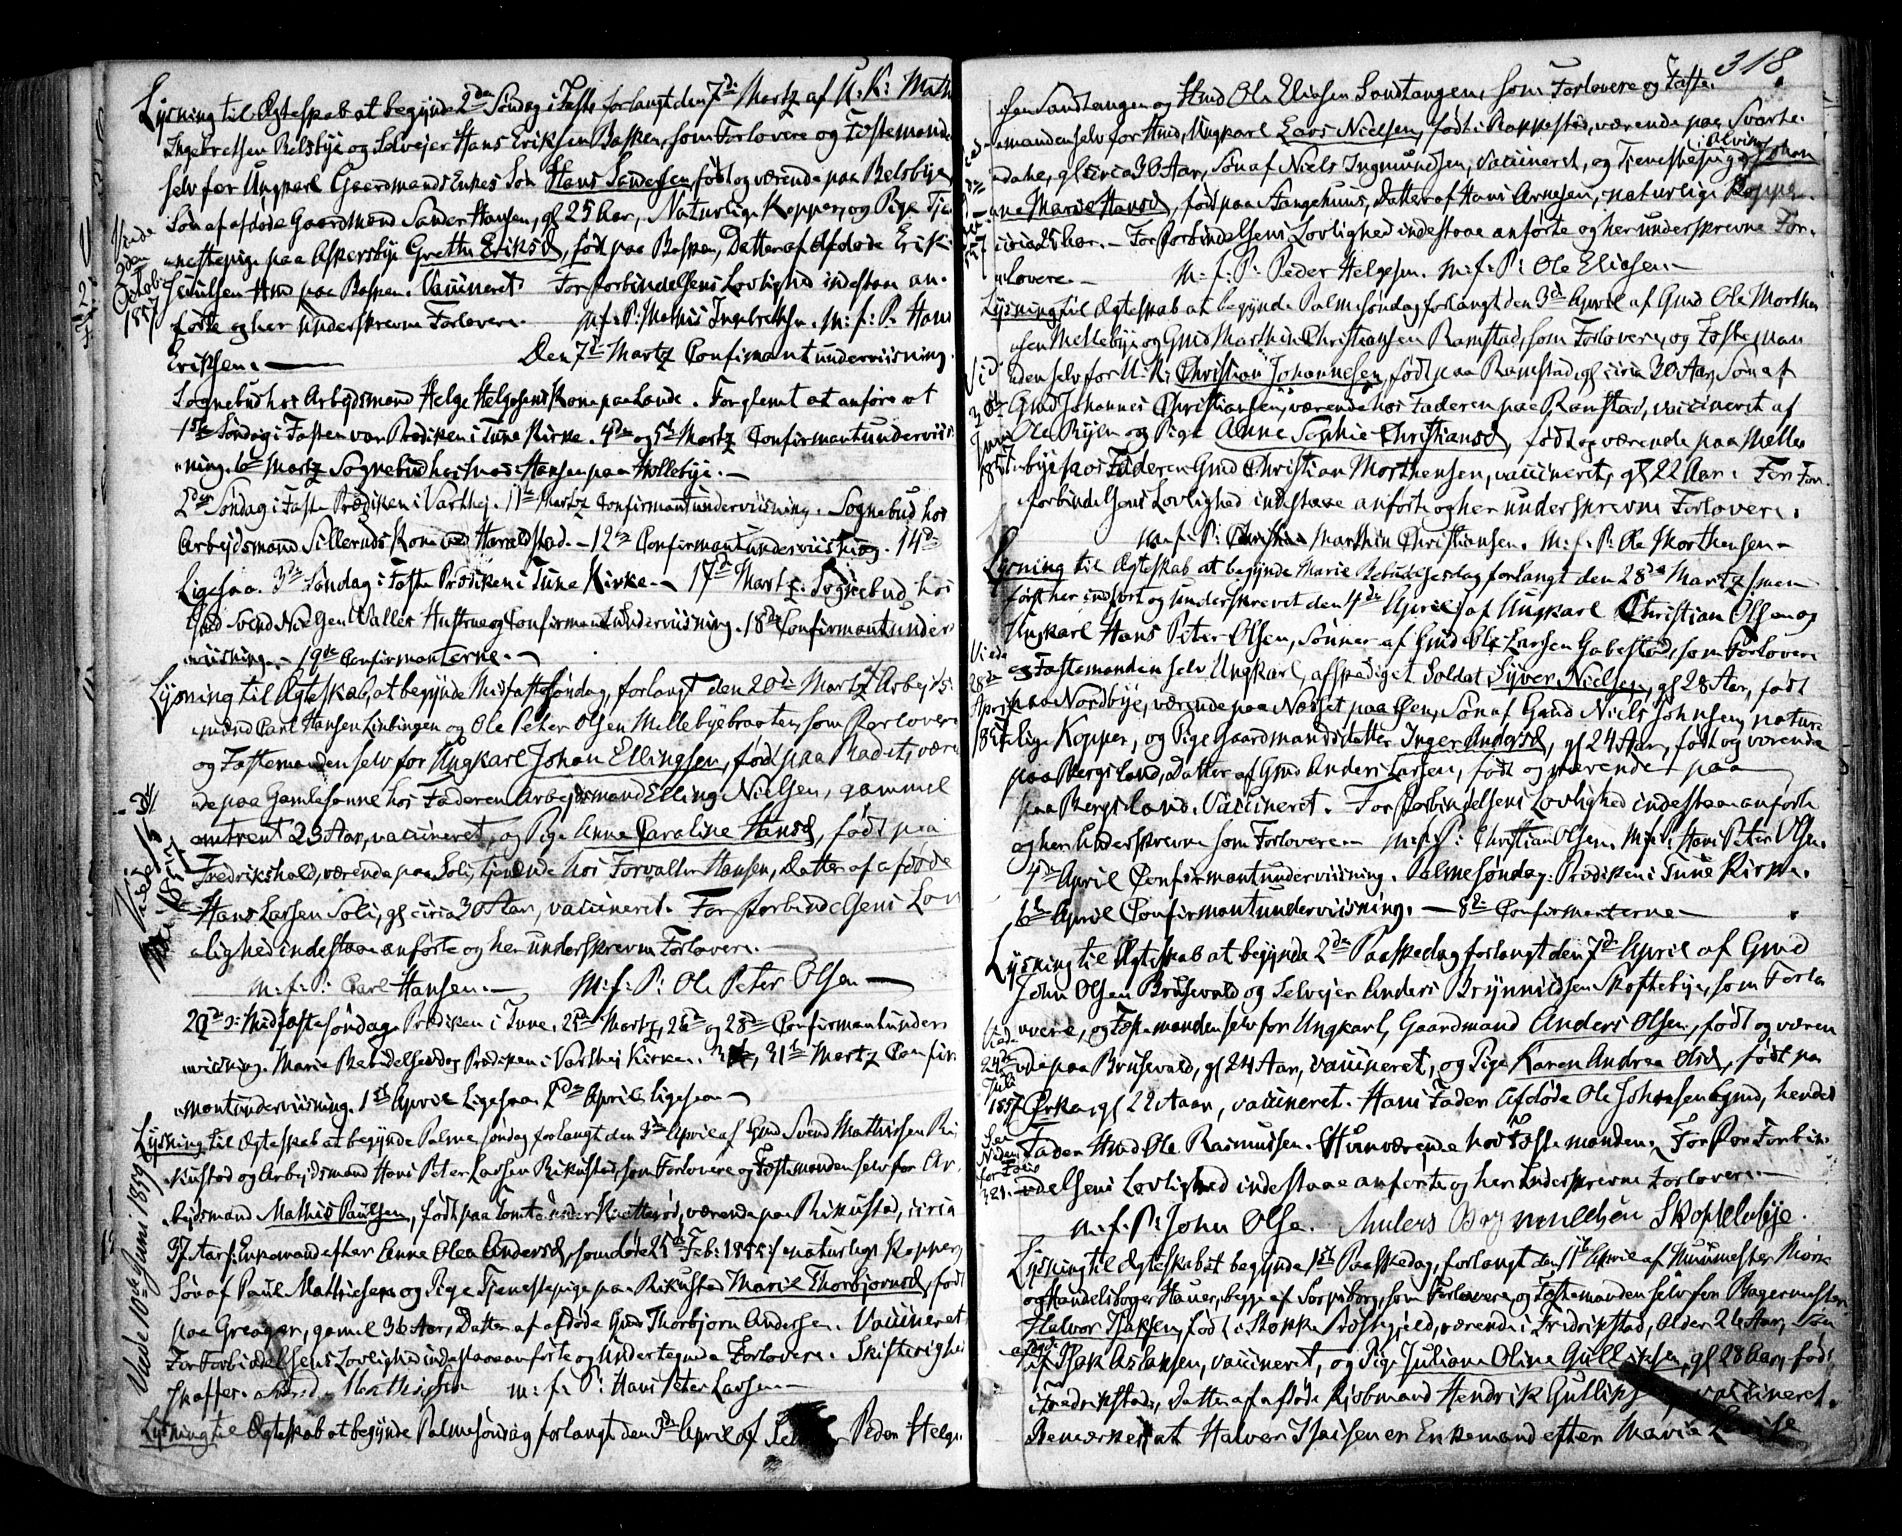 Lysning til Ægteskab at begynde 2den Søndag i Faste forlangt den 7de Martz af U. K. Math
Ingebretsen Belsbye og Selvejer Hans Eriksen Basken, som Forlovere og Fæstemanden
selv for Ungkarl Gaardmands Enkes Søn Hans Sandersen, født og værende paa Belsbye
Søn af afdøde Gaardmand Sander Hansen, gl 25 Aar, Naturlige Kopper, og Pige Tje
nestepige paa Askersbye Grethe Eriksd, født paa Basken, Datter af Afdøde Erik
Hmd paa Basken. Vaccineret. For Forbindelsens Lovlighed indestaae an-
førte og her underskrevne Forlovere. M. f. P. Mathis Ingebretsen. M. f. P. Hans
Eriksen. — Den 7de Martz Confirmantunderviisning.
Sognebud hos Arbejdsmand Helge Helgesens Kone paa Lande. Forglemt at anføre at
1ste Søndag i Fasten var Prædiken i Tune Kirke. 4de og 5te Martz Confirmantunderviis
ning. 6te Martz Sognebud hos Hansen paa Hollebye. —
2den Søndag i Faste Prædiken i Varthej. 11te Martz Confirmantunderviisning. Sognebud hos
Arbejdsmand Silleruds Kone ved Haraldstad. — 12te Confirmantunderviisning. 14de
Ligesaa. 3die Søndag i Faste Prædiken i Tune Kirke. — 17de Martz. Sognebud hos
Svend Nielsen Valles Hustrue og Confirmantunderviisning. 18de Confirmantunder
viisning. — 19de Confirmanterne. —
Lysning til Ægteskab, at begynde Midfastesøndag, forlangt den 20de Martz af Arbejds-
mænd Carl Hansen Linlingen og Ole Peter Olsen Mellebyebraaten, som Forlovere
og Fæstemanden selv for Ungkarl Johan Ellingsen, født paa Radet, være
nde paa Gamlesonne hos Faderen Arbejdsmand Elling Nielsen, gammel
omtrent 23 Aar, vaccineret, og Pige Anne Caroline Hansd, født paa
Fredrikshald, værende paa Soli, tjenende hos Forvalter Hansen, Datter af afdøde
Hans Larsen Soli, gl circa 30 Aar, vaccineret. For Forbindelsens Lov
lighed indestaae anførte og her underskrevne Forlovere. —
M. f. P. Carl Hansen. — M. f. P. Ole Peter Olsen —
Midfastesøndag Prædiken i Tune. 25de Martz, 26de og 28de Confirmantunder
viisning. Marie Bebudelsesdag Prædiken i Varthej Kirke. 31te Martz Confir
mantunderviisning. 1ste April Ligesaa. 2den April ligesaa —
Lysning til Ægteskab at begynde Palmesøndag forlangt den 3die April af Gmd Svend Mathisen Ri
kustad og Arbejdsmand Hans Peter Larsen Rikustad, som Forlovere og Fæstemanden selv for Ar
bejdsmand Mathis Paulsen, født paa Tomten under værende paa Rikustad, circa
37 Aar/: Enkemand efter Anne Olea Andersd, som døde 25de Feb: 1855 :/ naturlige Kopper,
Søn af Paul Mathisen og Pige Tjenestepige paa Rikustad Marie Thorbjørnsd, født
paa Greager, gamel 36 Aar, Datter af afdøde Gmd Thorbjørn Andersen. Vaccineret.
For Forbindelsens Lovlighed indestaae anførte og Undertegnede Forlovere. Skifterighed
skaffes. Svend Mathisen M. f. P. Hans Peter Larsen —
Lysning til Ægteskab at begynde Palmesøndag forlangt den 3die April af Peder Helge
Viede 2den Octobr 1857
Viede 15de Mai 1857
Viede 10de Juni 1859
318
sen Sandtangen og Hmd Ole Eliesen Sandtangen, som Forlovere og Fæste-
manden selv for Hmd, Ungkarl Lars Nielsen, født i Rakkestad, værende paa Svarte-
dahl, gl circa 30 Aar, Søn af Niels Ingmundsen, vaccineret, og Tjenestepige Johan
ne Marie Hansd, født paa Fangehuus, Datter af Hans Arnesen, naturlige Kopper,
circa 25 Aar. — For Forbindelsens Lovlighed indestaae anførte og her underskrevne For-
lovere. — M. f. P. Peder Helgesen. M. f. P. Ole Eliesen. —
Lysning til Ægteskab at begynde Palmesøndag forlangt den 3die April af Gmd Ole Morthen
sen Mellebye og Gmd Marthin Christiansen Ramstad, som Forlovere, og Fæsteman
den selv for U. K. Christian Johannesen, født paa Ramstad, gl circa 30 Aar, Søn af
Gmd Johannes Christiansen, værende hos Faderen paa Ramstad, vaccineret af
Ole Ryen og Pige Anne Sophie Christiansd, født og værende paa Melle
bye hos Faderen Gmd Christian Morthensen, vaccineret, gl 22 Aar. For For
forbindelsens Lovlighed indestaae anførte og her underskrevne Forlovere.
M. f. P. Marthin Christiansen. M. f. P. Ole Morthensen —
Lysning til Ægteskab at begynde Marie Bebudelsesdag forlangt den 28de Martz /: men
først her indført og underskrevet den 4de April :/ af Ungkarl Christian Olsen og
Ungkarl Hans Peter Olsen, Sønner af Gmd Ole Larsen Gabestad, som Forlovere
og Fæstemanden selv Ungkarl, afskediget Soldat Syver Nielsen, gl 28 Aar, født
paa Nordbye, værende paa Næsset paa Øen, Søn af Gmd Niels Johnsen, natur
lige Kopper, og Pige Gaardmandsdatter Inger Andersd, gl 24 Aar, født og værende
paa Bergsland, Datter af Gmd Anders Larsen, født og værende paa
paa Bergsland. Vaccineret. For Forbindelsens Lovlighed indestaae anførte
og her Underskrevne som Forlovere. — M. f. P. Christian Olsen. M. f. P. Hans Peter Olsen.
4de April Confirmantunderviisning. Palmesøndag: Prædiken i Tune Kirke.
6te April Confirmantunderviisning. — 8de Confirmanterne —
Lysning til Ægteskab at begynde 2den Paaskedag forlangt den 7de April af Gmd
John Olsen Brusevold og Selvejer Anders Brynnildsen Skoftebye, som Forlo
vere, og Fæstemanden selv for Ungkarl, Gaardmand Anders Olsen, født og væren
de paa Brusevold, gl 24 Aar, vaccineret, og Pige Karen Andrea Olsd, født paa
Ørke, gl 22 Aar, vaccineret. Hans Fader Afdøde Ole Johnsen Gmd, hendes
Fader Hmd Ole Rasmussen. Hun værende hos Fæstemanden. For For Forbin
delsens Lovlighed indestaae anførte og her Underskrevne Forlovere. —
M. f. P. John Olse. Anders Brynnildsen Skoftebye.
Lysning til Ægteskab at begynde 1ste Paaskedag, forlangt den 11te April af Muurmester Mørk
og Handelsborger Hauer, begge af Sarpsborg, som Forlovere og Fæstemanden selv for Bagermester
Halvor Isaksen, født i Præstegjeld, værende i Fredrikstad, Alder 26 Aar, Søn
af Isak Aslaksen, vaccineret, og Pige Juliane Oline Gulliksen, gl 28 Aar, født
i Fredrikstad, Datter af afdøde Hendrik Gulliks vaccineret.
Bemærkes at Halvor Isaksen er Enkemand efter Maria
Viede 28de April 1857
Viede 24de Juli 1857